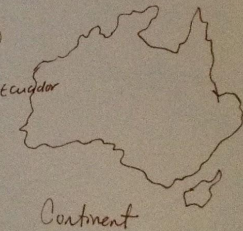 Ecuador
Continent